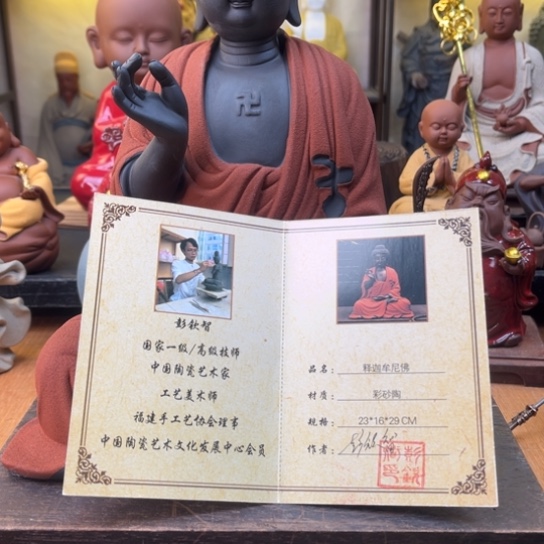 卍
彭钦智
国家一级/高级技师
中国陶瓷艺术家
工艺美术师
福建手工艺协会理事
中国陶瓷艺术文化发展中心会员
品名：释迦牟尼佛
材质：彩砂陶
规格：23*16*29CM
作者：